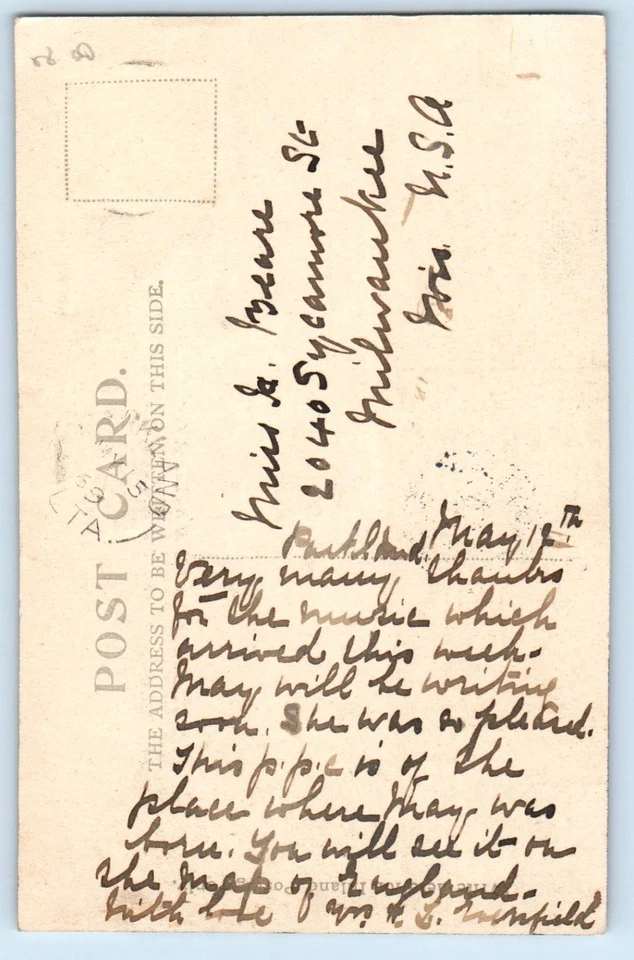 POST CARD.
THE ADDRESS TO BE WRITTEN ON THIS SIDE.
LTA
MY
15
09
Miss
2040 Sycamore St
Milwaukee
Wis. U.S.A
May 12th
Very many thanks
for the music which
arrived this week.
May will be writing
soon. She was so pleased.
This p.p.c is of the
place where May was
born. You will see it on
the Map of England.
With love